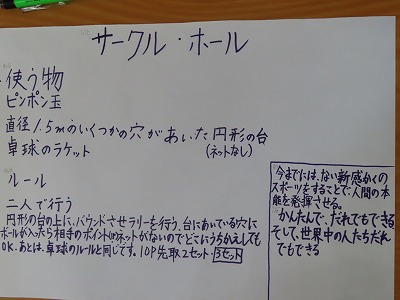 サークル・ホール
使う物
ピンポン玉
直径1.5mのいくつかの穴があいた円形の台
卓球のラケット
(ネットなし)
ルール
二人で行う
円形の台の上に、バウンドさせラリーを行う、台にあいている穴に
ボールが入ったら相手のポイント ネットがないのでどこにうちかえしても
OK.あとは、卓球のルールと同じです。10P先取2セット・3セット
今までには、ない新感かくの
スポーツをすることで、人間の本
能を発揮させる。
かんたんで、だれでもできる
そして、世界中の人たちだれ
でもできる